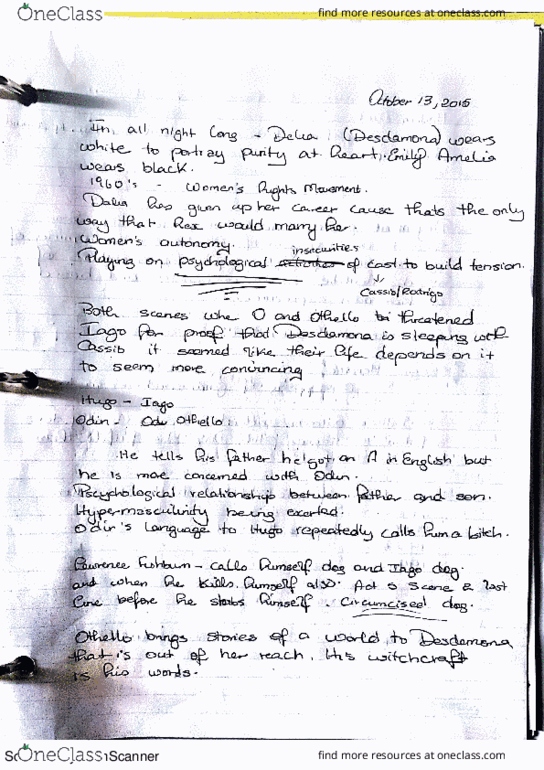 OneClass
find more resources at oneclass.com
October 13, 2015
In all night long - Delia (Desdamona) wears
white to portray purity at heart. Emily Amelia
wears black.
1960's - Women's Rights Movement.
Delia has given up her career cause thats the only
way that Rex would marry her.
Women's autonomy.
insecurities
Playing on psychological activities of cast to build tension.
Cassio/Rodrigo
Both scenes wher O and Othello threatened
Iago for proof that Desdamona is sleeping with
Cassio it seemed like their life depends on it
to seem more convincing
Hugo - Iago
Odin - Othello
He tells his father he got an A in English but
he is more concerned with Odin.
Pscychological relationship between father and son.
Hypermasculinity being exerted.
Odin's language to Hugo repeatedly calls him a bitch.
Lawrence Fishburn - calls himself dog and Iago dog.
and when he kills himself also. Act 5 Scene 2 last
line before he stabs himself. Circumcised dog.
Othello brings stories of a world to Desdamona
that is out of her reach. His witchcraft
is his words.
OneClass
Scanner
find more resources at oneclass.com